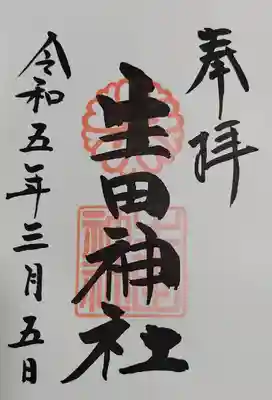 奉拝
生田神社
令和五年三月五日